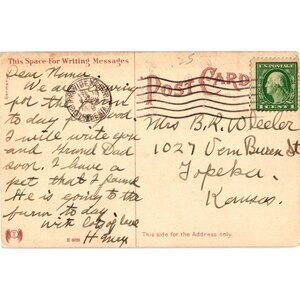 This Space For Writing Messages
Dear Nana.
We are
to day
I will write you
and Grand Dad
soon. I have a
pet that I found
He is going to the
to day
with lots of love
POST CARD
25
U.S. POSTAGE
1 CENT 1
Mrs B. R. Wheeler
1027 Van Buren St
Topeka
Kansas.
This side for the Address only.